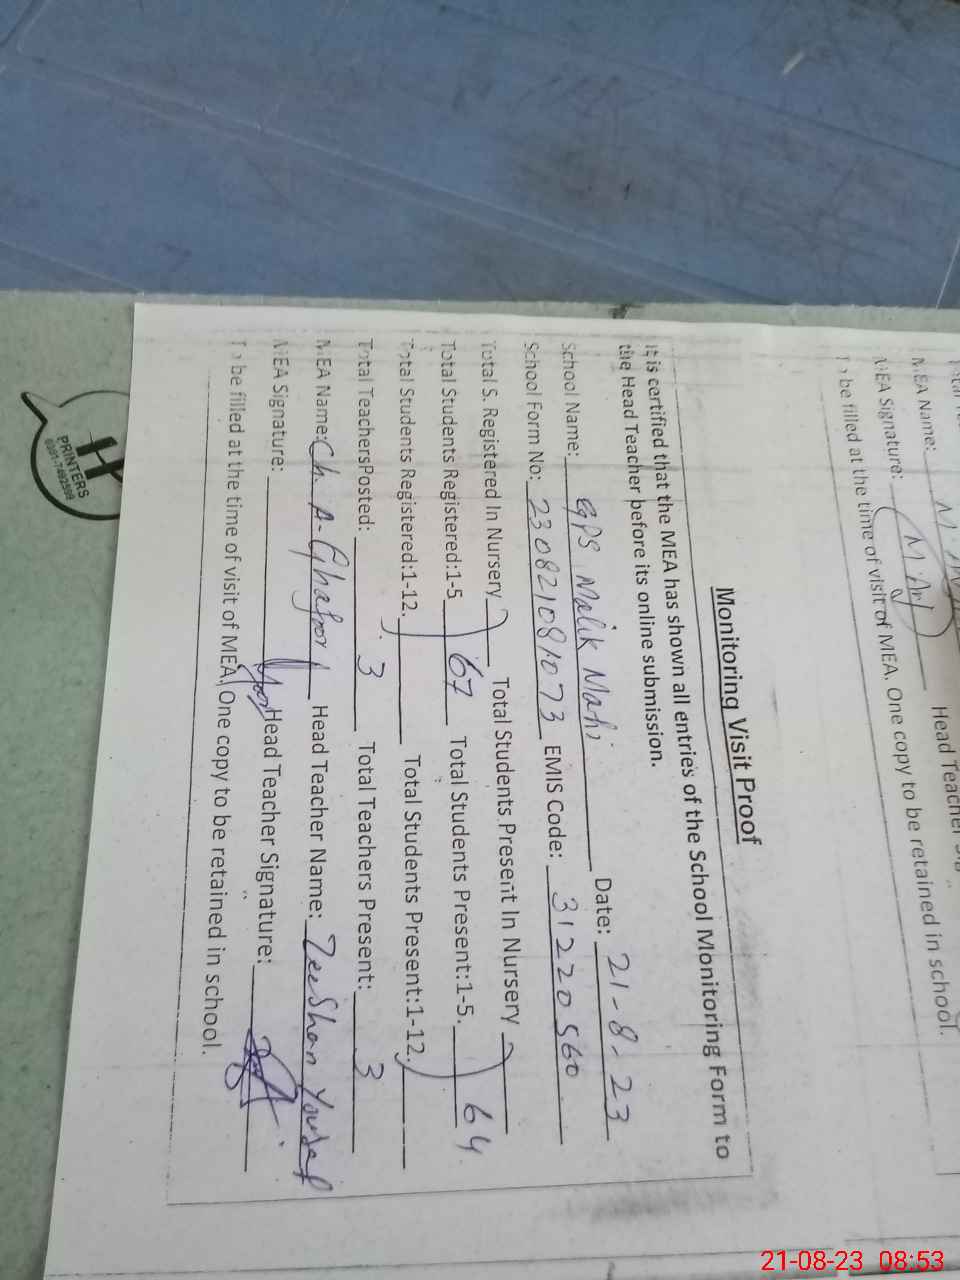 MEA Name:
MEA Signature: M. Ar Head Teacher
To be filled at the time of visit of MEA. One copy to be retained in school.
Monitoring Visit Proof
It is certified that the MEA has shown all entries of the School Monitoring Form to
the Head Teacher before its online submission.
School Name: GPS Malik Mahi Date: 21-8-23
School Form No: 230821081073 EMIS Code: 31220560
Total S. Registered In Nursery Total Students Present In Nursery
Total Students Registered:1-5 67 Total Students Present:1-5. 64
Total Students Registered:1-12. Total Students Present:1-12.
Total TeachersPosted: 3 Total Teachers Present: 3
MEA Name: Ch. A-Ghafoor Head Teacher Name: Zeeshan Yousaf
MEA Signature: Head Teacher Signature:
To be filled at the time of visit of MEA. One copy to be retained in school.
H
PRINTERS
21-08-23 08:53